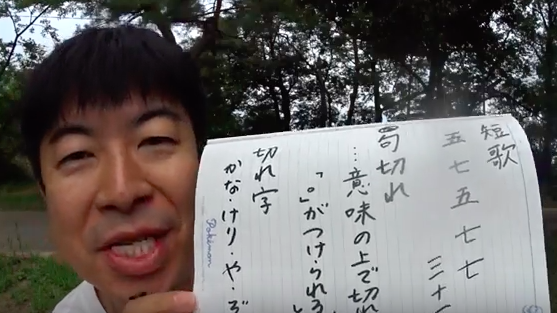 短歌
五七五七七
三十
句切れ
…意味の上で切れ
「。」がつけられる
切れ字
かな・けり・や・ぞ
Pokémon